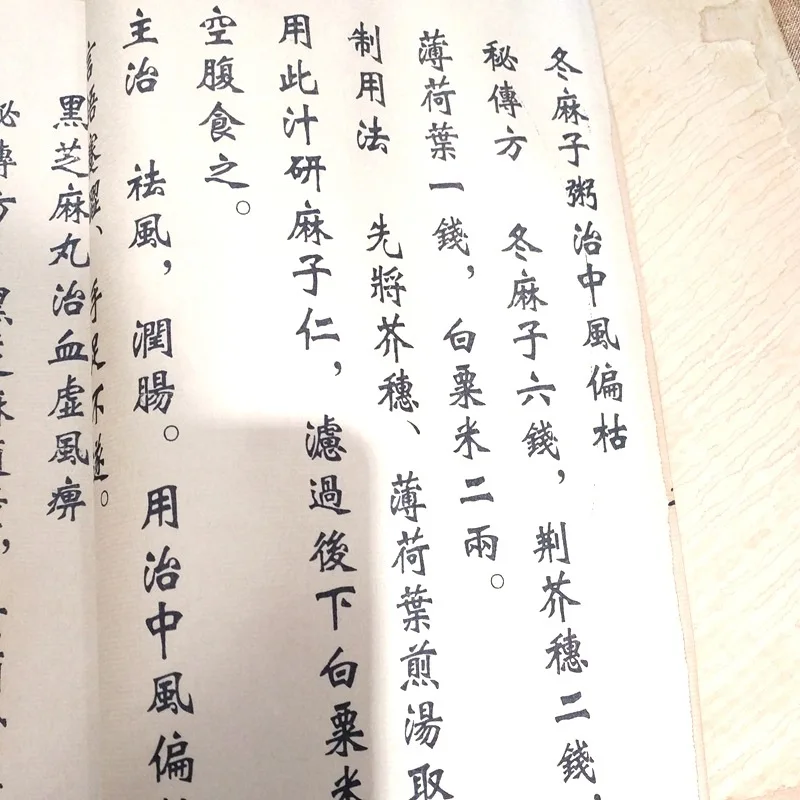 冬麻子粥治中風偏枯
秘傳方　冬麻子六錢，荆芥穗二錢，
薄荷葉一錢，白粟米二兩。
制用法　先將芥穗、薄荷葉煎湯取
用此汁研麻子仁，濾過後下白粟米
空腹食之。
主治　祛風，潤腸。用治中風偏枯
言語蹇澀、手足不遂。
黑芝麻丸治血虛風痹
秘傳方